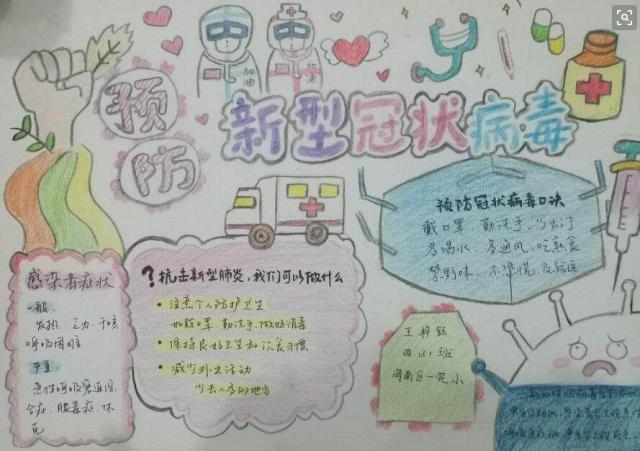 预
防
新型冠状病毒
加油
加油
感染者症状
一般:
发热、乏力、干咳
呼吸困难
严重:
急性呼吸窘迫综
合症、脓毒症、休
克
?抗击新型肺炎,我们可以做什么
• 注意个人防护卫生
如戴口罩 勤洗手、做好消毒
• 保持良好卫生和饮食习惯
• 减少外出活动
少去人多的地方
预防冠状病毒口诀
戴口罩 勤洗手,少出门
多喝水,多通风,吃熟食
禁野味,不恐慌,及就医
王梓钰
四(1)班
海南区一完小